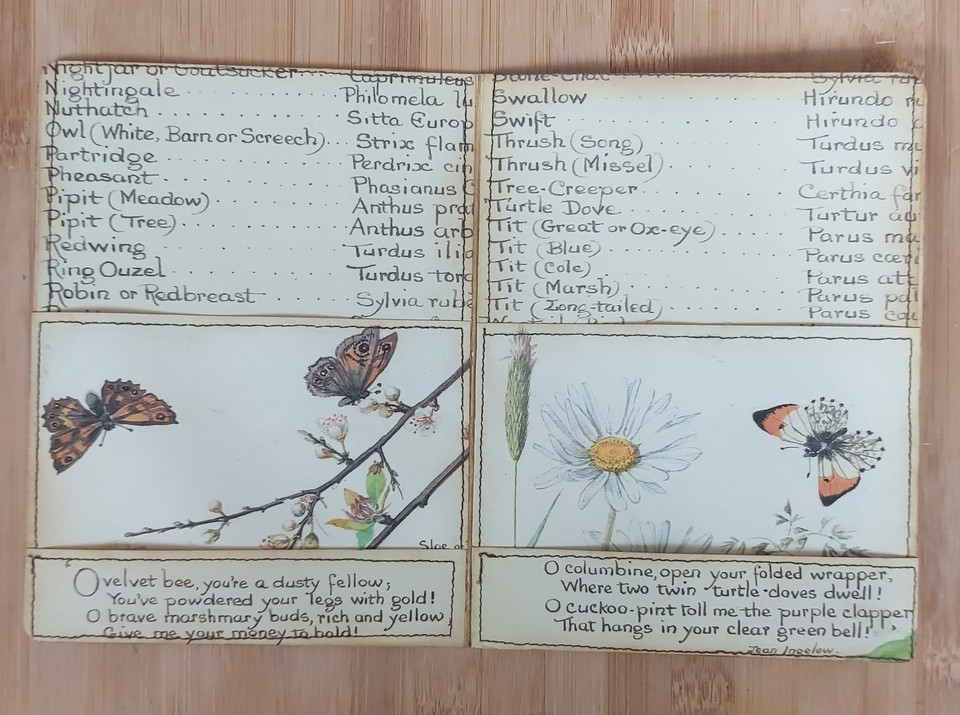 Nightjar or Goatsucker Caprimulgus
Nightingale Philomela lu
Nuthatch Sitta Europ
Owl (White, Barn or Screech) Strix flam
Partridge Perdrix cin
Pheasant Phasianus C
Pipit (Meadow) Anthus prat
Pipit (Tree) Anthus arb
Redwing Turdus ilia
Ring Ouzel Turdus torq
Robin or Redbreast Sylvia rube
Sloe
O velvet bee, you're a dusty fellow;
You've powdered your legs with gold!
O brave marshmary buds, rich and yellow,
Give me your money to hold!
Stone-Chat Sylvia ru
Swallow Hirundo ru
Swift Hirundo
Thrush (Song) Turdus mu
Thrush (Missel) Turdus vi
Tree-Creeper Certhia fa
Turtle Dove Turtur au
Tit (Great or Ox-eye) Parus ma
Tit (Blue) Parus cær
Tit (Cole) Parus
Tit (Marsh) Parus pal
Tit (Long-tailed) Parus cau
O columbine, open your folded wrapper,
Where two twin turtle-doves dwell!
O cuckoo-pint toll me the purple clapper
That hangs in your clear green bell!"
Jean Ingelow.